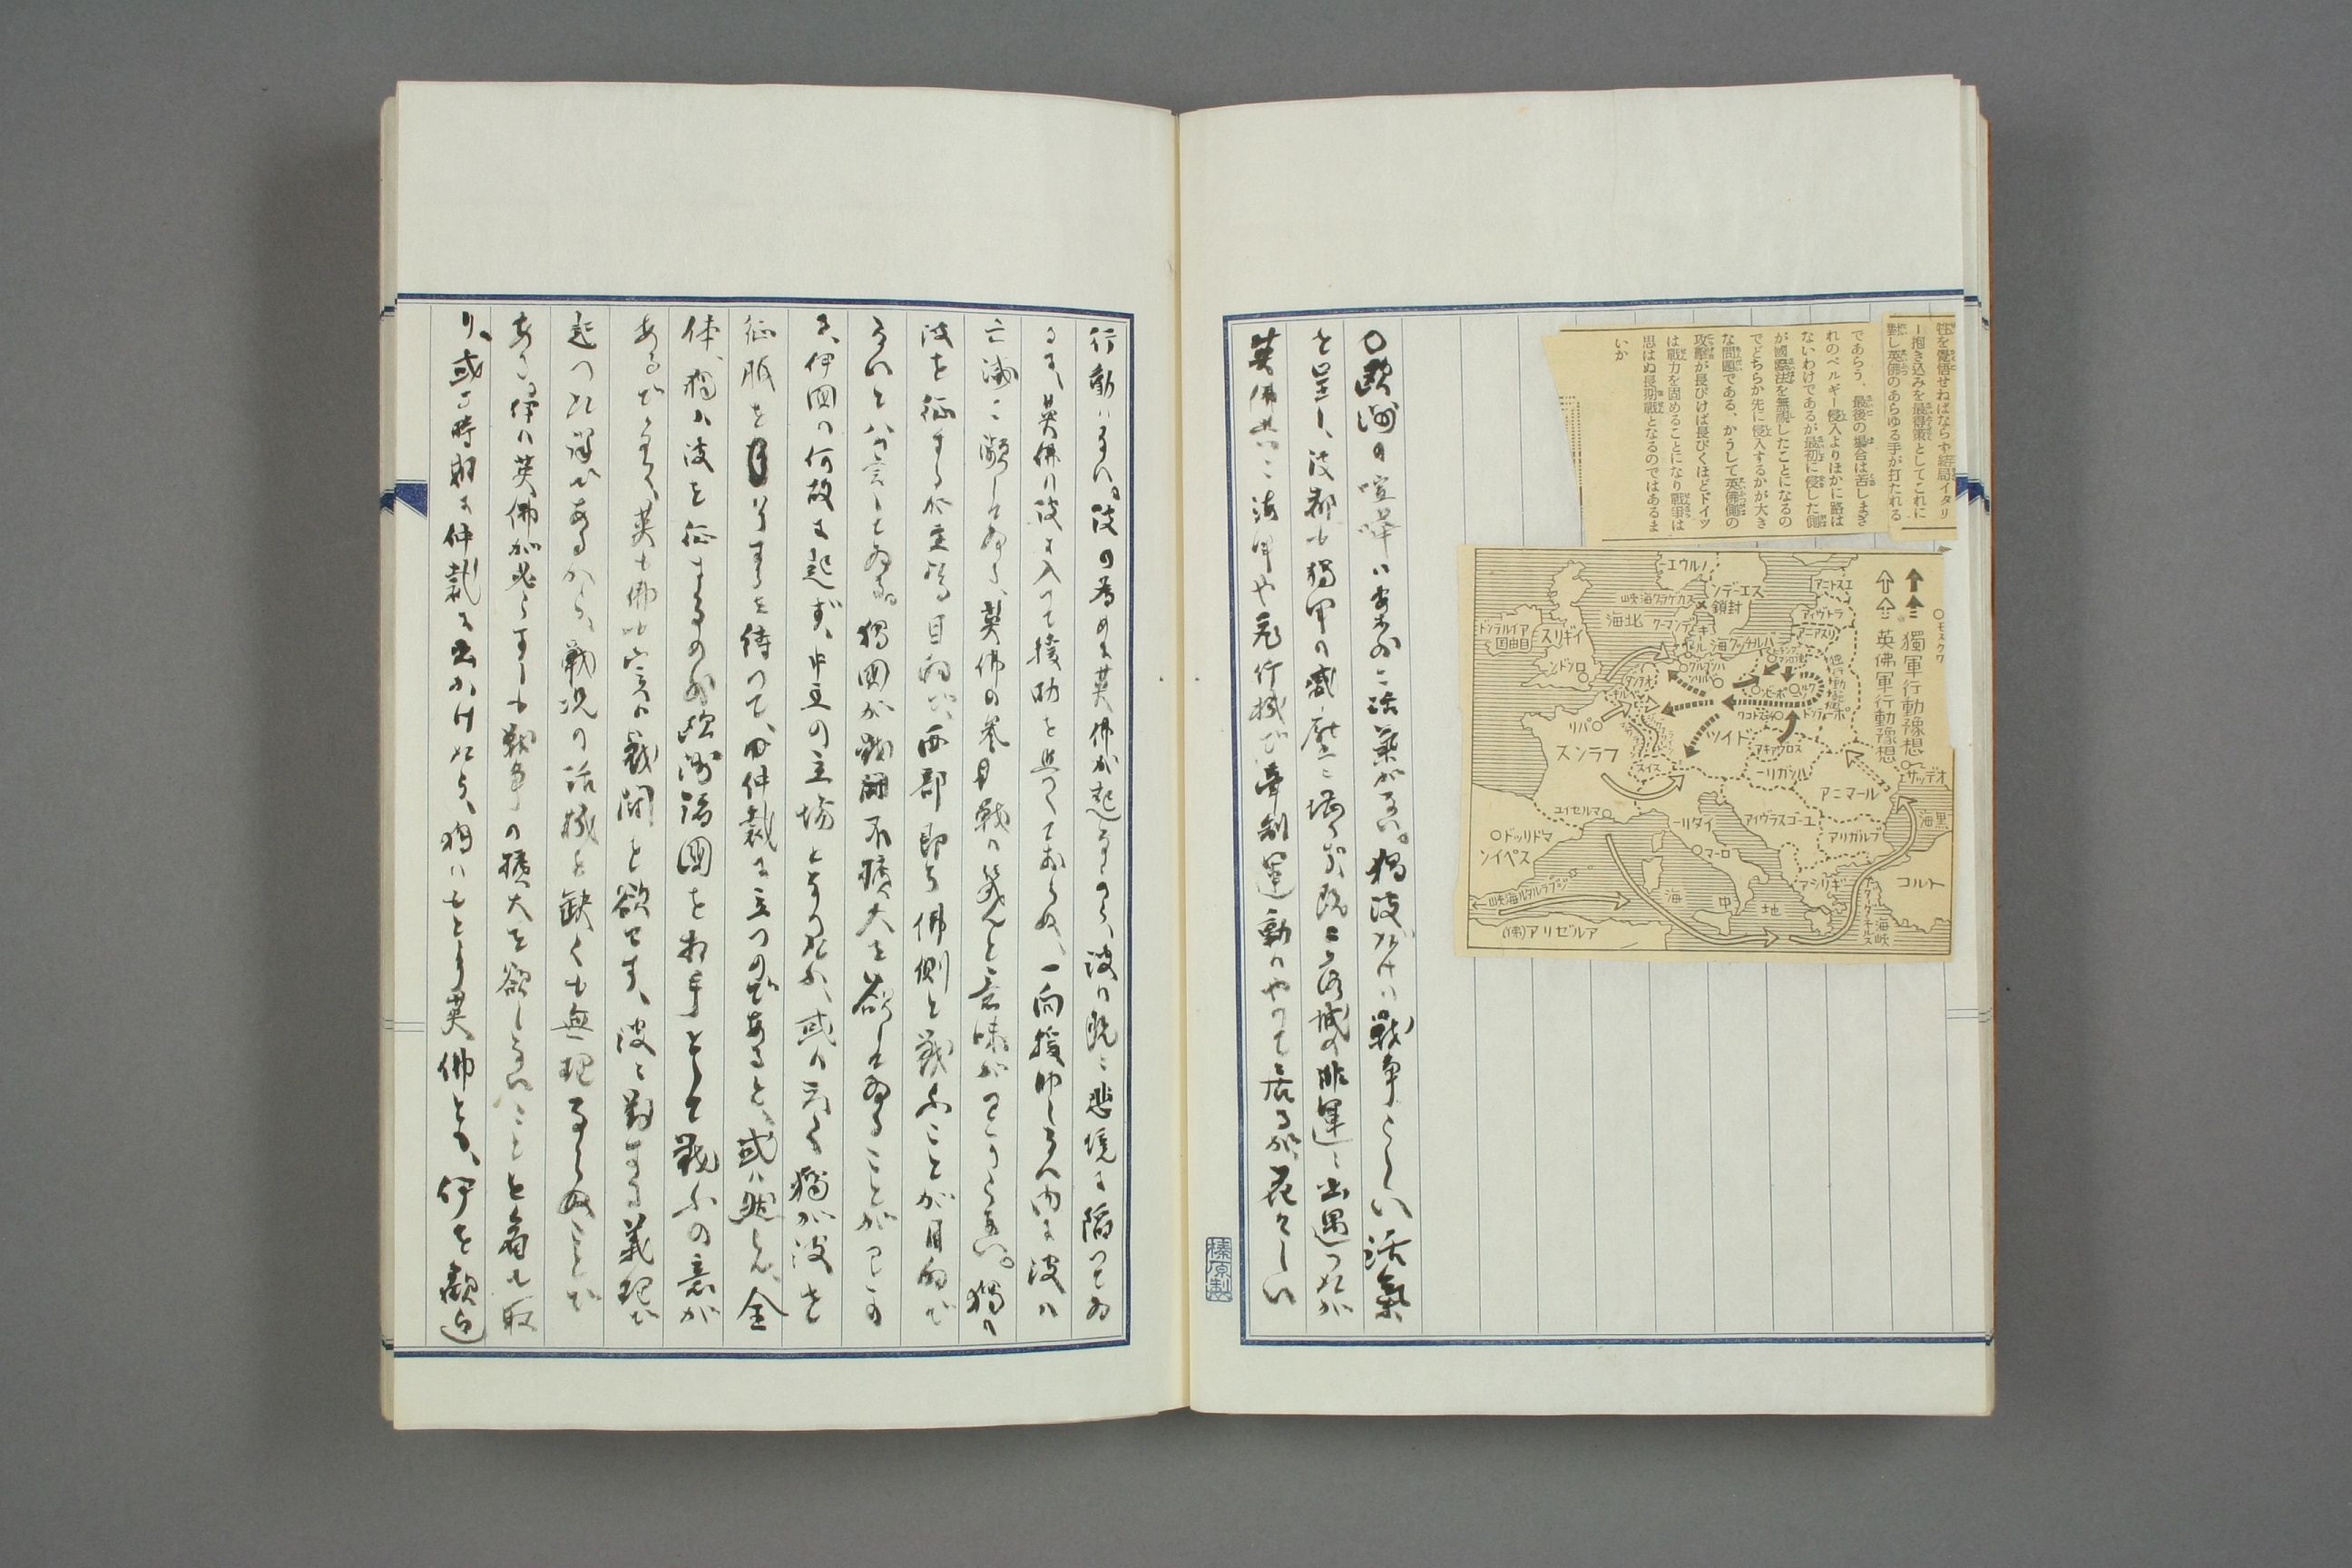 牲を覺悟せねばならず結局イタリ
ー抱き込みを最得策としてこれに
對し英佛のあらゆる手が打たれる
であらう、最後の場合は苦しまぎ
れのベルギー侵入よりほかに路は
ないわけであるが最初に侵した側
が國際法を無視したことになるの
でどちらか先に侵入するかが大き
な問題である、かうして英佛側の
攻擊が長びけば長びくほどドイツ
は戰力を固めることになり戰爭は
思はぬ長期戰となるのではあるま
いか
獨軍行動豫想
英佛軍行動豫想
モスクワ
エストニア
ラトヴィア
リスアニア
スエーデン
ノルウエー
封鎖
スカゲラク海峡
北海
デンマーク
バルチック海
アイルランド
自由国
イギリス
ロンドン
オランダ
ベルギー
パリ
フランス
スイス
ドイツ
スロヴァキア
ハンガリー
ルーマニア
オデッサ
黒海
マルセイユ
イタリー
ローマ
ユーゴスラヴィア
ブルガリア
ギリシア
トルコ
ダーダネルス
海峡
マドリッド
スペイン
ジブラルタル海峡
地中海
アルゼリア(佛)
〇歐洲の喧嘩は案外に活氣がない。獨波だけは戰爭らしい活氣
を呈し、波都も獨軍の
英佛共に海軍や飛行機で牽制運動はやつて居るが、花々しい
榛原製
行動はない。波の為めに英佛が起ちながら、波は既に悲境に陥つてゐ
るに、英佛は波に入つて援助を與へておらぬ、一向援助しない内に波は
亡滅に瀕してゐる、英佛の参戰は何んと意味がわからない。獨は
波を征するが主なる目的で、西部即ち佛側と戰ふことが目的で
ないとハツキリ言してゐる。獨國が戰鬪不擴大を欲してゐることがわかる
に、伊國は何故に起たず、中立の立場をとつたか、或は恐らく獨が波を
征服を了するを待つて、仲裁に立つのであると、或は然らん、全
体、獨は波を征するの外歐洲諸國を相手として戰ふの意が
あるでなく、英も佛も實は戰鬪を欲せず、波に對する義理で
起つた譯であるから、戰況の活氣を缺くも無理ならぬことで
ある、伊は英佛が必らずしも戰爭の擴大を欲しないことを看て取
り、或る時期に仲裁に出かけたら、獨はもとより英佛とも、伊を歡迎